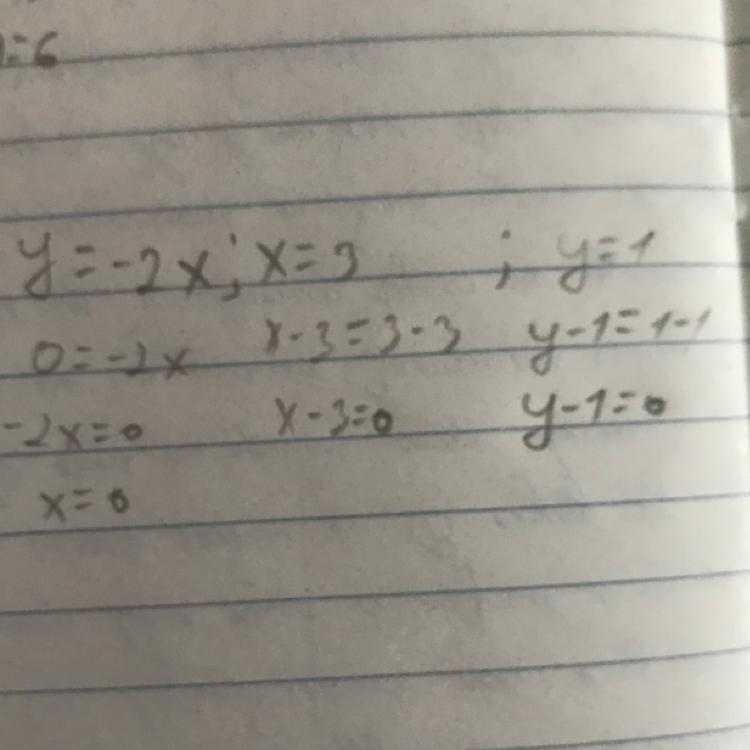 =6
y=-2x; x=3 ; y=1
0=-2x x-3=3-3 y-1=1-1
-2x=0 x-3=0 y-1=0
x=0